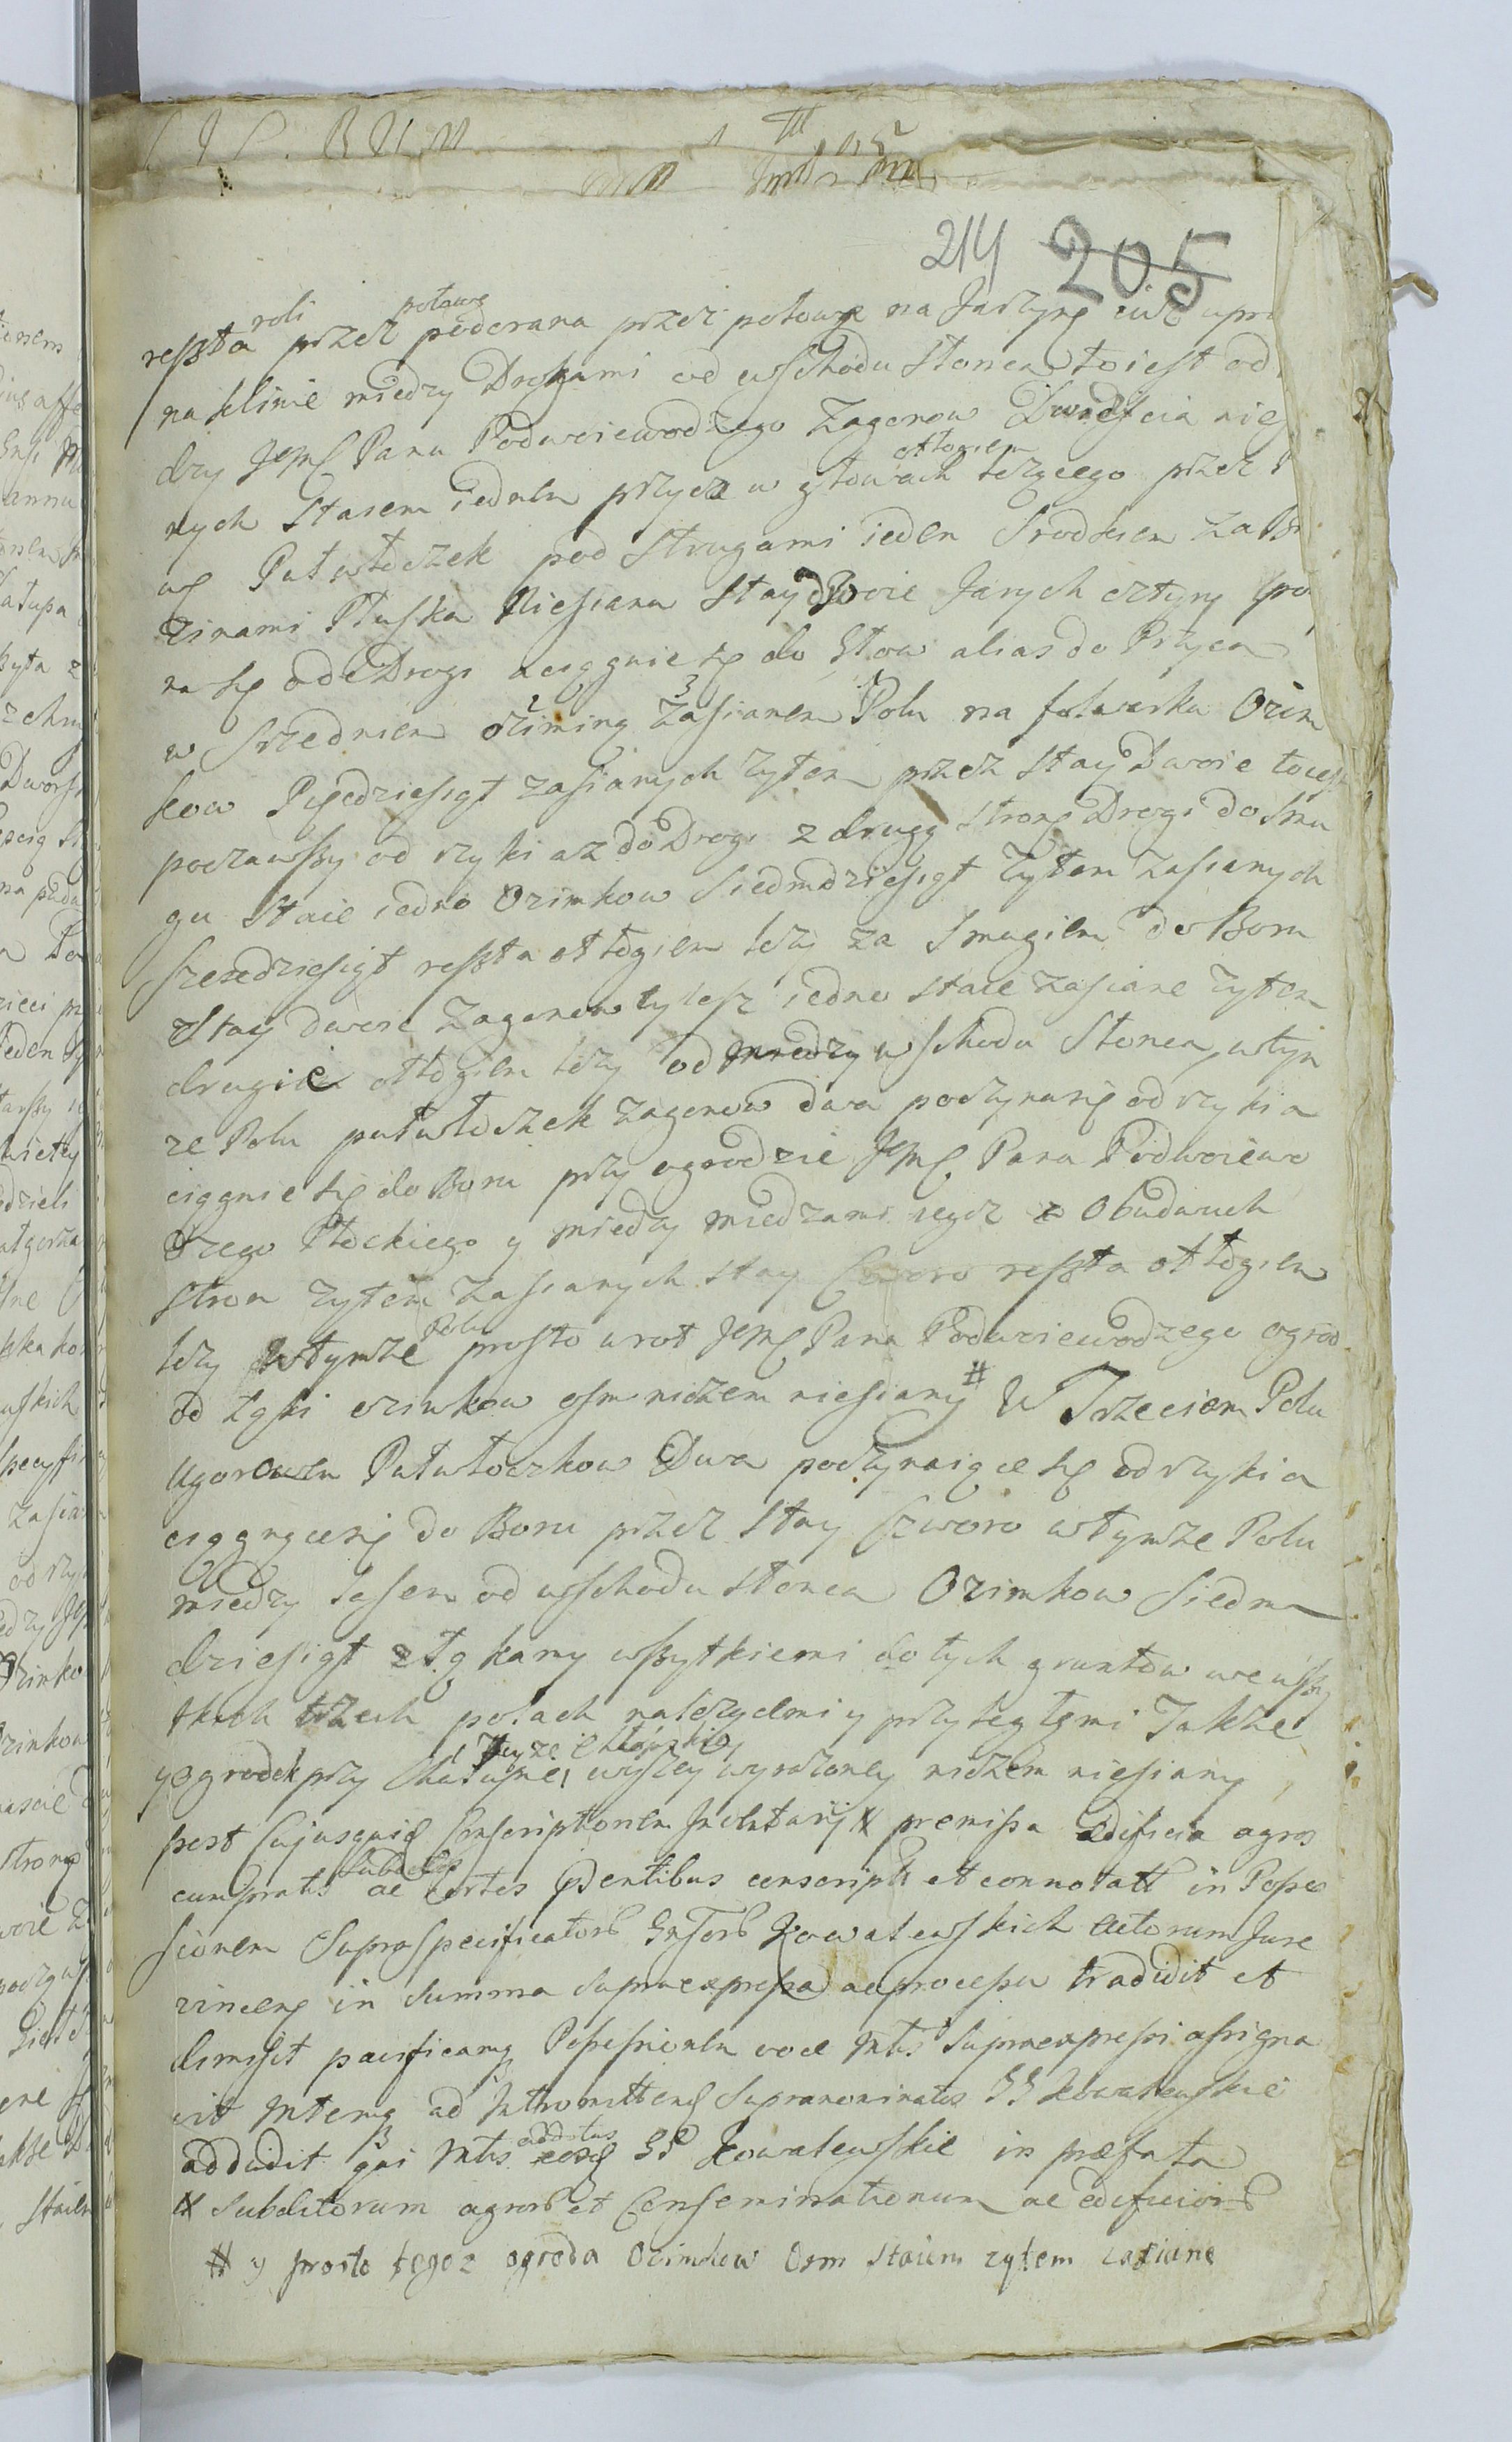 214 205
roli połowę
reszta przez podorana przez połowę na Jarzynę iuż upra
na klinie między Drogami od wschodu słonca to iest od
dzy Jęmć Pana Podwoiewodzego Zagonow Dwadzscia nie
ottogiem
nych staiem iednem przycz w głowach leżącego przez
wę Putwłoczek pod strugami ieden srodkiem za
zinami Pluska niesiana stay dwoie Jarych cztyry po
na się od Drogi a ciągnie się do Głow alias do Przycza
w srzednien oziminą zasianem Polu na folwarku Ozim
kow Pięcdziesiąt zasianych żytem przez stay Dwoie toiest
począwszy od rzyki aż do Drogi z drugą stronę Drogi do smu
gu staie iedno Ozimkow Siedmdziesiąt żytem zasianych
szescdziesiąt reszta ottogiem leży za smugiem do Boru
stay dwoie Zagonow tylesz iedno staie zasiane żytem
drugie ottogiem leży od wschodu słonca, wtym
ze Polu putwłoczek zagonow dwa poczyna się od rzyki a
ciągnie się do Boru przy ogrodzie Jęmć Pana Podwoiewo
dzego Płockiego y między miedzami iegoż z Obudwuch
stron żytem zasianych stay czworo reszta ottogiem
Polu
leży wtymże prosto wrot Jęmć Pana Podwoiewodzego ogrod
od łąki ozimkow osm niczem niesiany # W Trzeciem Polu
Ugorowem Putwłoczkow Dwa poczynaiące się od rzyki a
ciągnące się do Boru przez stay czworo wtymże Polu
między lasem od wschodu słonca Ozimkow Siedm
dziesiąt z łąkamy wszytkiemi do tych gruntow we wszy
tkich trzech polach należącemi y przyległemi Takze
teyze chłopskiey
y ogrodek przy Chałupie wyżey wyrażoney niczem niesiany
post Cujusquidem Conscriptionem Inventarij # premissa ædificia agros
subditos
cum pratis ac sortes Pdentibus conscriptis et connotatis in Posses
sionem Supraspecificatorum Gnsorum Kowalewskich Actorum Jure
vincens in summa supraexpressa ac processu tradidit et
dimisit pacificamq Possessionem voce Mtris supraexpressi assigna
vit Mtremq ad Intromittens supranominatos GG Kowalewskie
addidit qui Mtris additus GG Kowalewskie in præfata
# subditorum agrorum et Conseminationum ac ædificiorum
# y prosto tegoz ogroda Ozimkow Osm staiem zytem zasiane